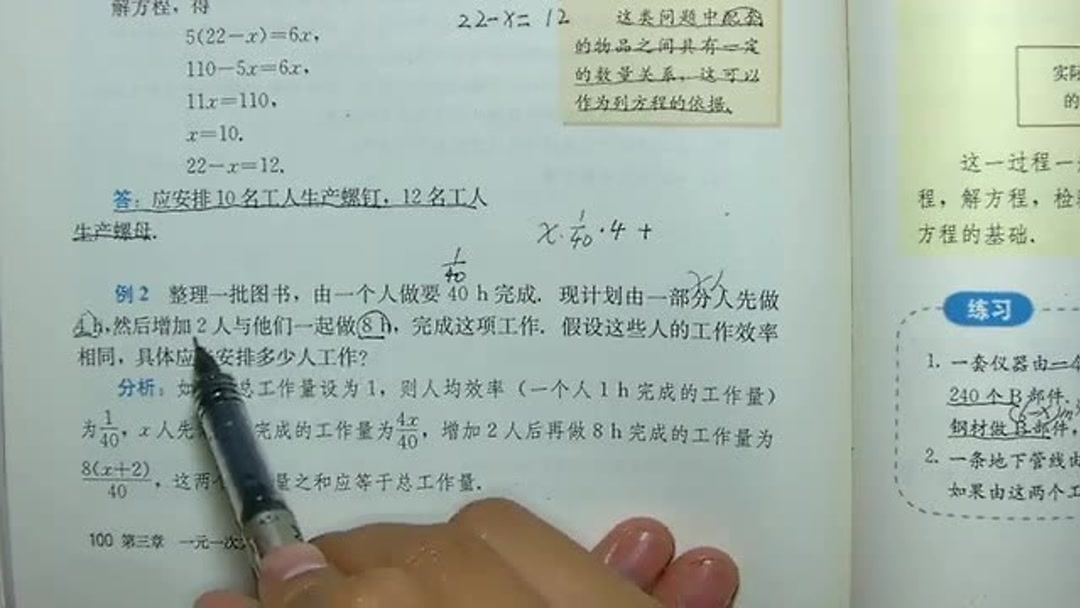 解方程，得
22-x=12
5(22-x)=6x，
110-5x=6x，
11x=110，
x=10.
22-x=12.
这类问题中配套
的物品之间具有一定
的数量关系，这可以
作为列方程的依据.
答：应安排10名工人生产螺钉，12名工人
生产螺母.
x·1/40·4+
1/40
例2 整理一批图书，由一个人做要40 h完成. 现计划由一部分人先做
4 h，然后增加2人与他们一起做8 h，完成这项工作. 假设这些人的工作效率
相同，具体应安排多少人工作？
分析：如 总工作量设为1，则人均效率（一个人1 h完成的工作量）
为1/40，x人先 完成的工作量为4x/40，增加2人后再做8 h完成的工作量为
8(x+2)/40，这两 量之和应等于总工作量.
100 第三章 一元一次
实际
的
这一过程一
程，解方程，检
方程的基础.
练习
1. 一套仪器由一个
240个B部件.
钢材做B部件，
2. 一条地下管线由
如果由这两个工